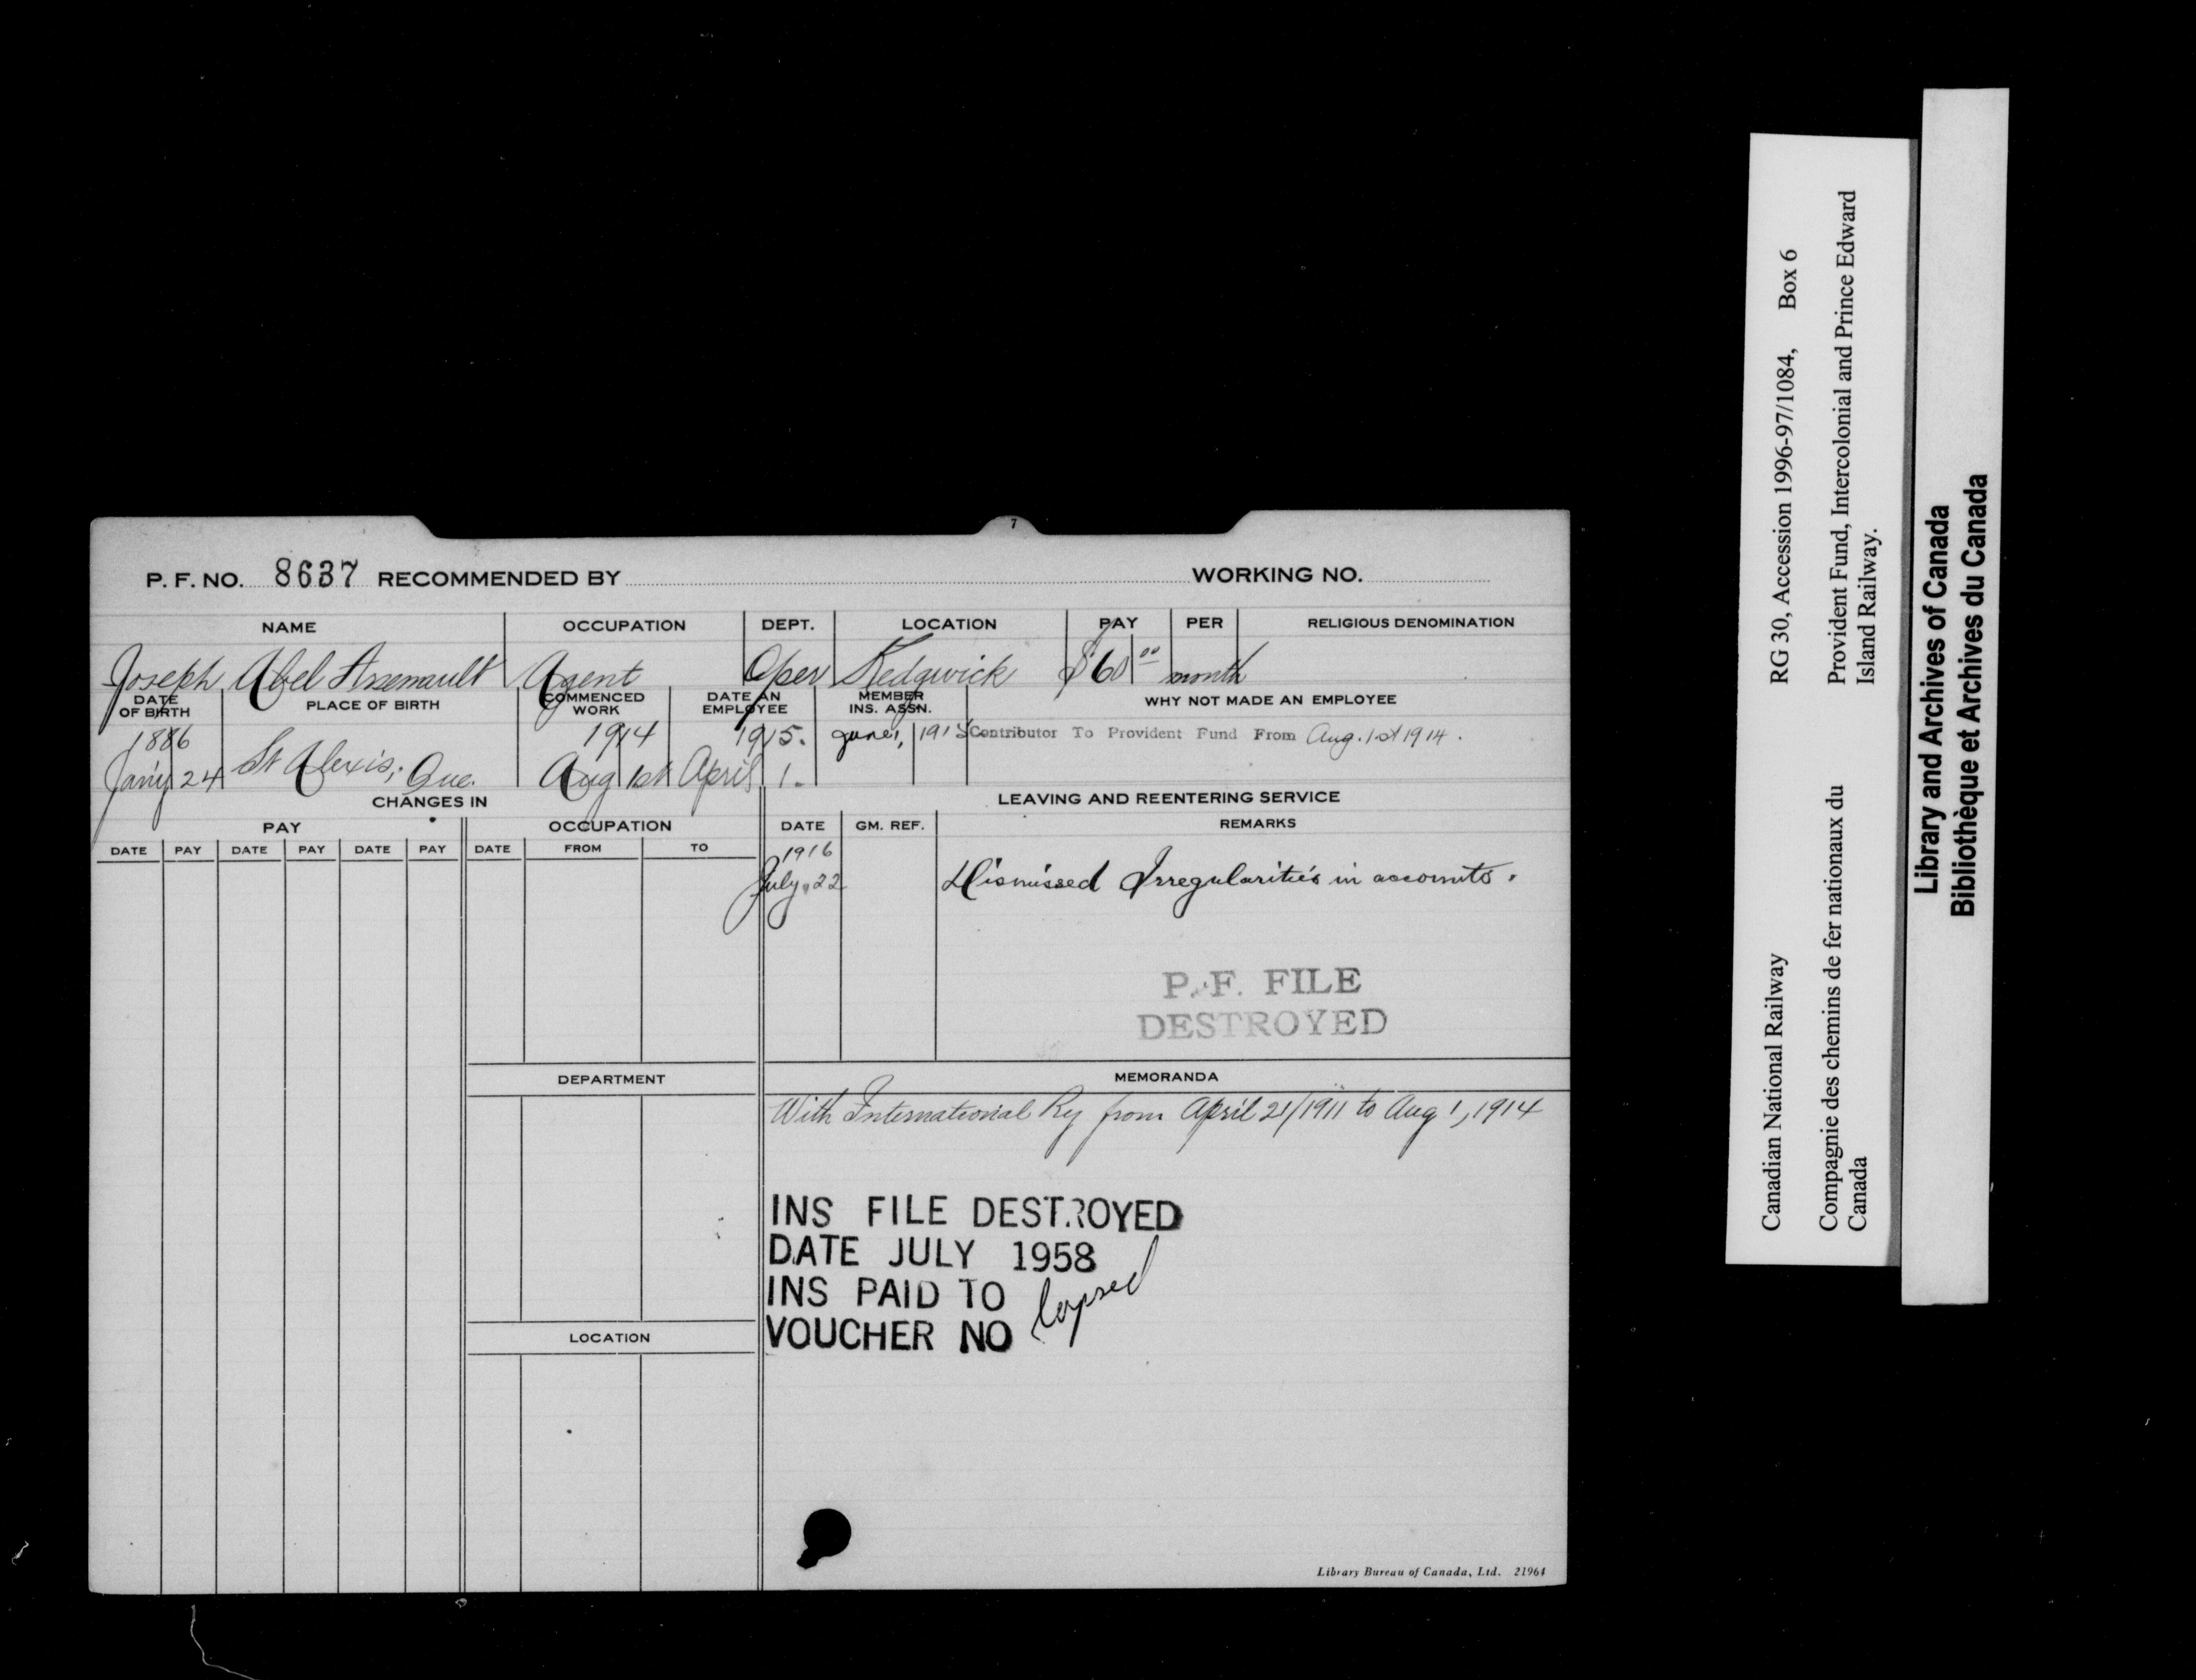 7
P. F. NO. 8637 RECOMMENDED BY WORKING NO.
NAME OCCUPATION DEPT. LOCATION PAY PER RELIGIOUS DENOMINATION
Joseph Abel Arsenault Agent Oper Kedgwick $60 00 month
DATE OF BIRTH PLACE OF BIRTH COMMENCED WORK DATE AN EMPLOYEE MEMBER INS. ASSN. WHY NOT MADE AN EMPLOYEE
1886 1914 1915. June 1, Contributor To Provident Fund From Aug. 1st 1914.
Jan'y 24 St Alexis, Que. Aug 1st April 1.
CHANGES IN LEAVING AND REENTERING SERVICE
PAY OCCUPATION DATE GM. REF. REMARKS
DATE PAY DATE PAY DATE PAY DATE FROM TO
1916
July 22 Dismissed Irregularities in accounts.
P. F. FILE
DESTROYED
DEPARTMENT MEMORANDA
With International Ry from April 21/1911 to Aug 1, 1914
INS FILE DESTROYED
DATE JULY 1958
INS PAID TO lapsed
VOUCHER NO
LOCATION
Library Bureau of Canada, Ltd. 21964
Canadian National Railway RG 30, Accession 1996-97/1084, Box 6
Compagnie des chemins de fer nationaux du Provident Fund, Intercolonial and Prince Edward
Canada Island Railway.
Library and Archives of Canada
Bibliothèque et Archives du Canada